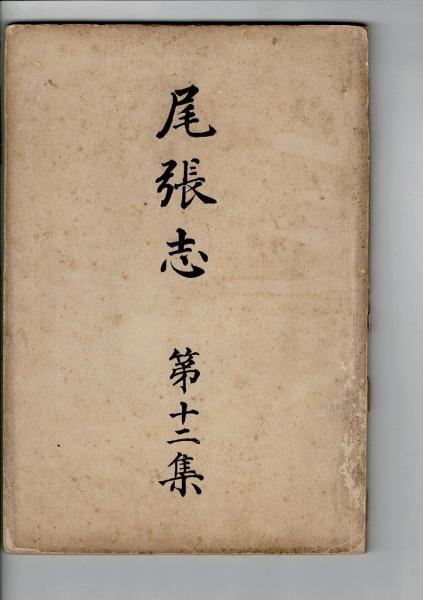 尾張志 第十二集